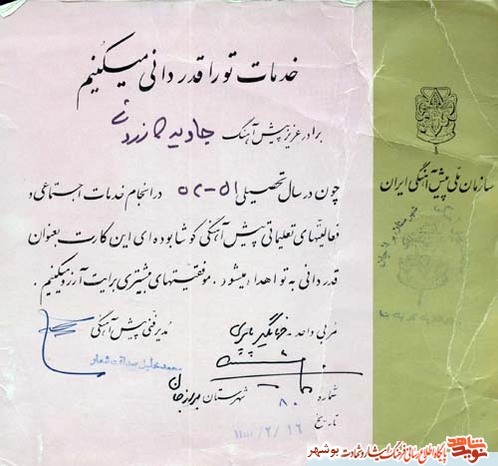 خدمات تو را قدردانی میکنیم
برادر عزیز پیش آهنگ جاوید
چون در سال تحصیلی ۵۱-۵۲ در انجام خدمات اجتماعی و
فعالیتهای تعلیماتی پیش آهنگی کوشا بوده‌ای این کارت بعنوان
قدردانی به تو اهدا میشود. موفقیتهای بیشتری برایت آرزو میکنیم.
مربی واحد - جهانگیر
مدیر فنی پیش آهنگی
محمد خلیل صداقت شعار
شماره ۸۰
شهرستان برازجان
تاریخ
سازمان ملی پیش آهنگی ایران
نوید شاهد
پایگاه اطلاع رسانی فرهنگ ایثار و شهادت بوشهر